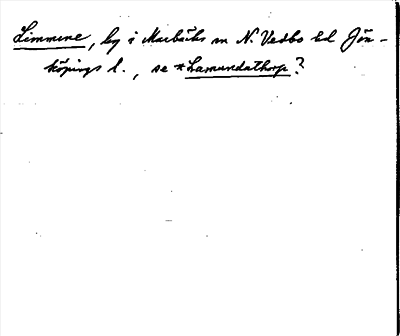 Limmene, by i Marbäcks sn N. Vedbo hd Jön-
köpings l., se *Lamundathorp?